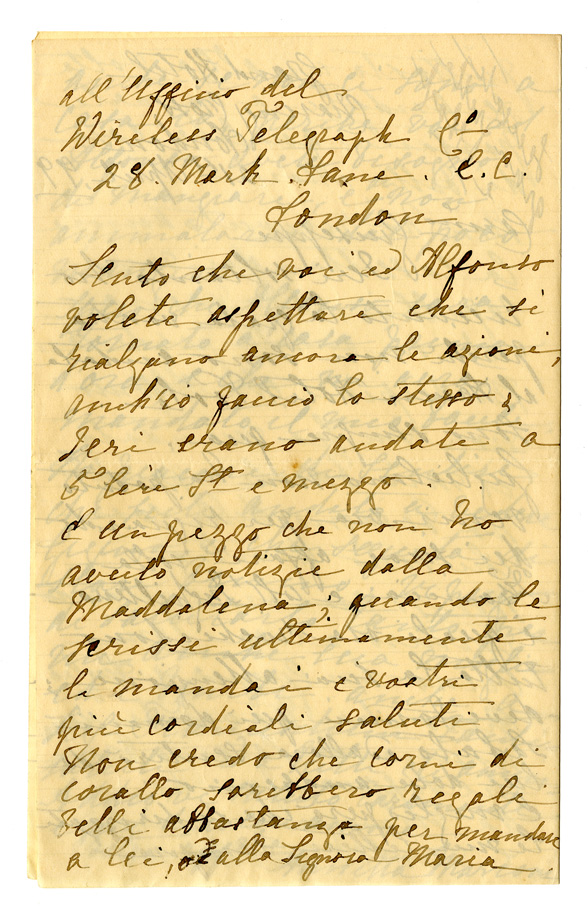 all'Ufficio del
Wireless Telegraph Co
28. Mark Lane. E.C.
London
Sento che voi ed Alfonso
volete aspettare che si
rialzano ancora le azioni,
anch'io faccio lo stesso;
Jeri erano andate a
5 lire St e mezzo.
È un pezzo che non ho
avuto notizie dalla
Maddalena; quando le
scrissi ultimamente
le mandai i vostri
più cordiali saluti
Non credo che corni di
corallo sarebbero regali
belli abbastanza per mandare
a lei, alla Signora Maria